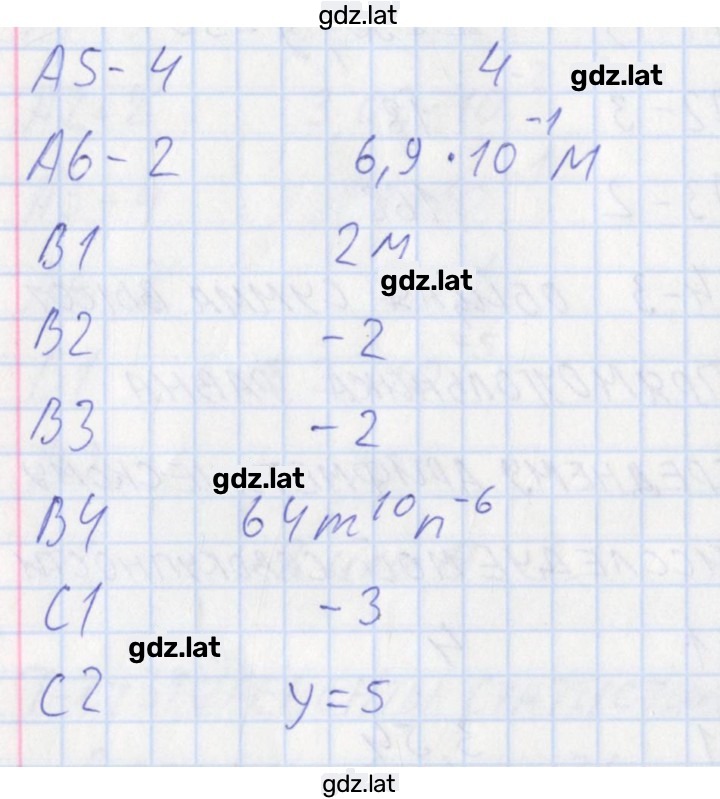 gdz.lat
А5 - 4 4
gdz.lat
А6 - 2 6,9 · 10⁻¹ м
В1 2 м
gdz.lat
В2 - 2
В3 - 2
gdz.lat
В4 64m¹⁰n⁻⁶
С1 - 3
gdz.lat
С2 y = 5
gdz.lat